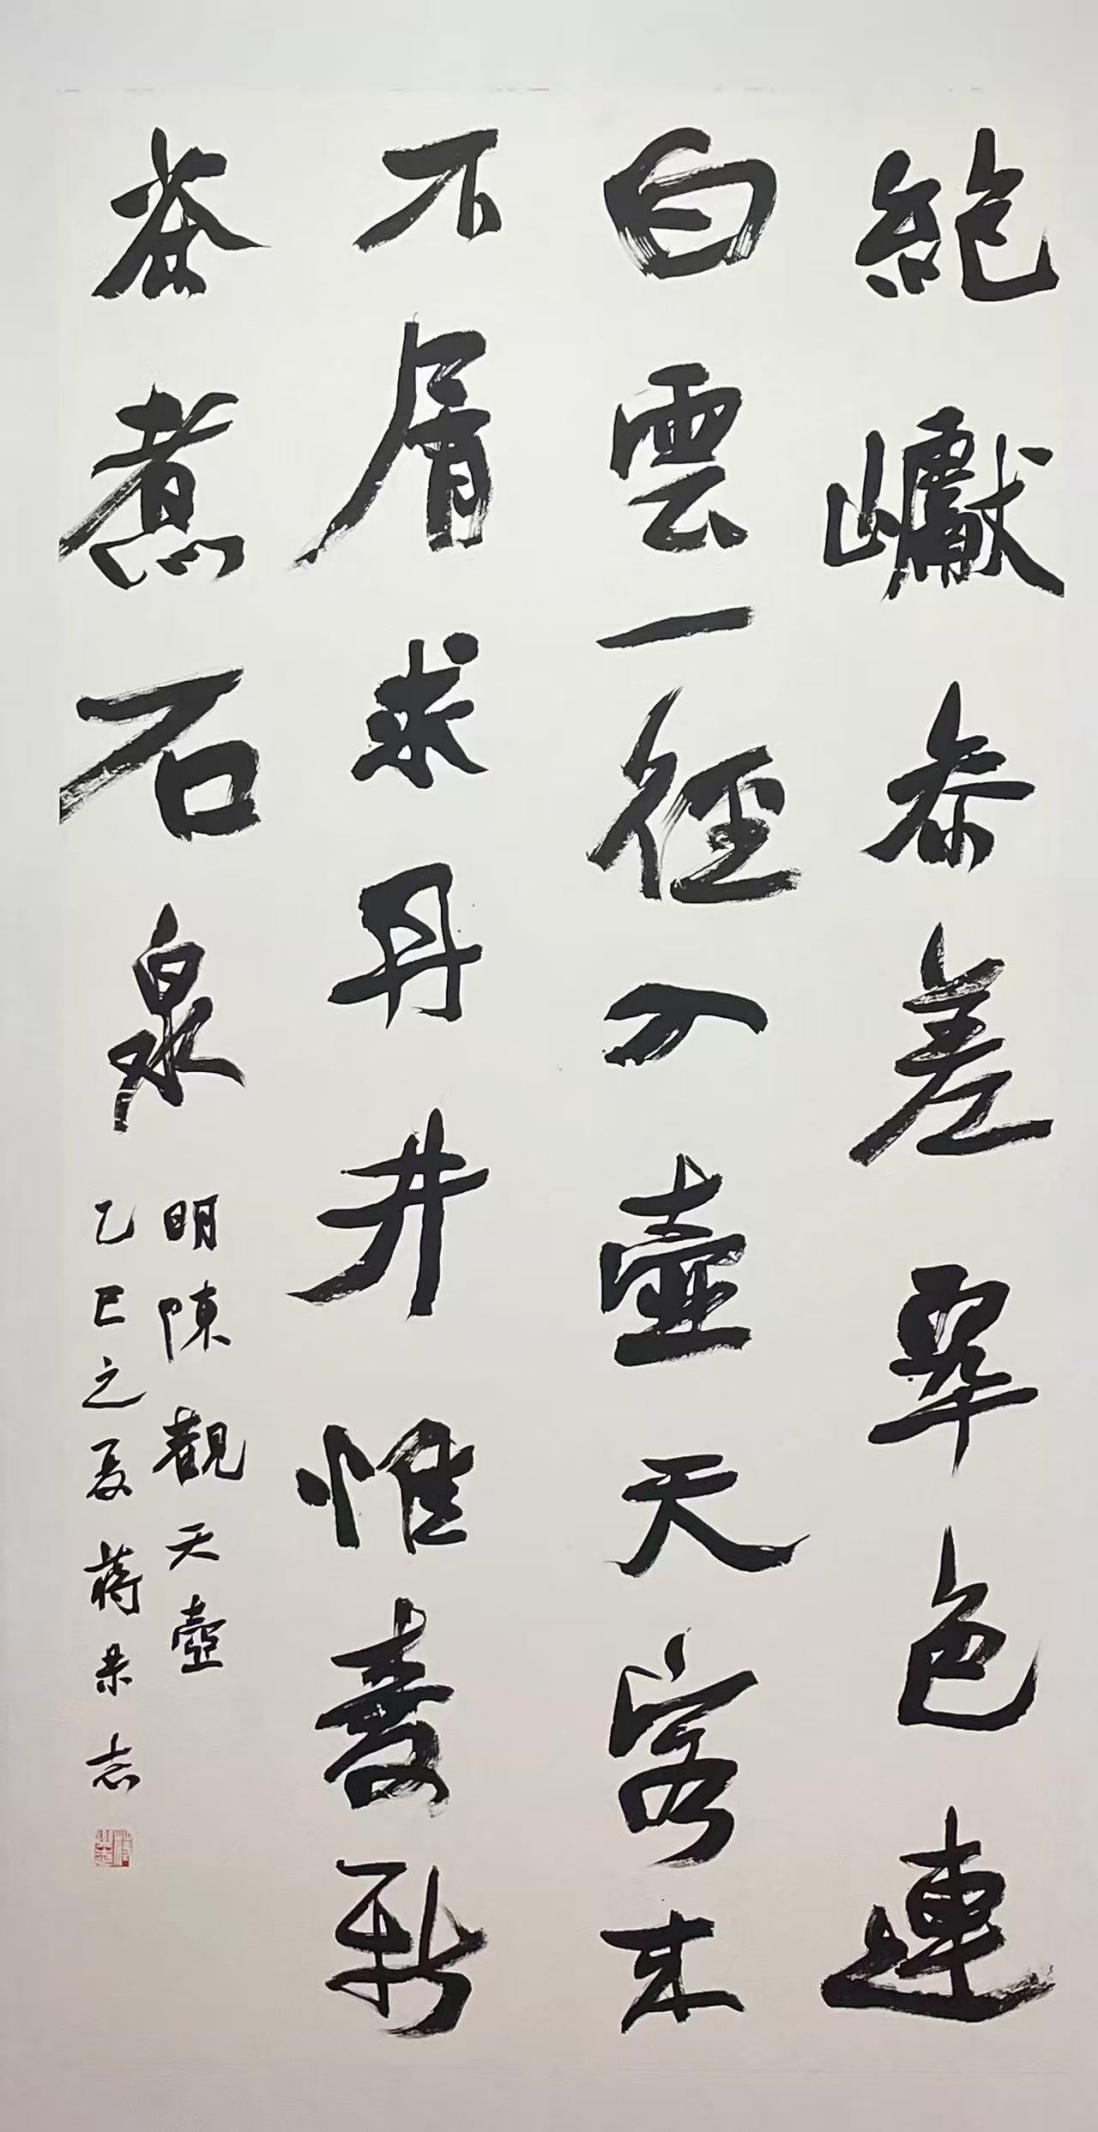 絕巘參差翠色連
白雲一徑入壺天客來
不屑求丹井惟愛新
茶煮石泉
明陳觀天壺
乙巳之夏蔣榮志